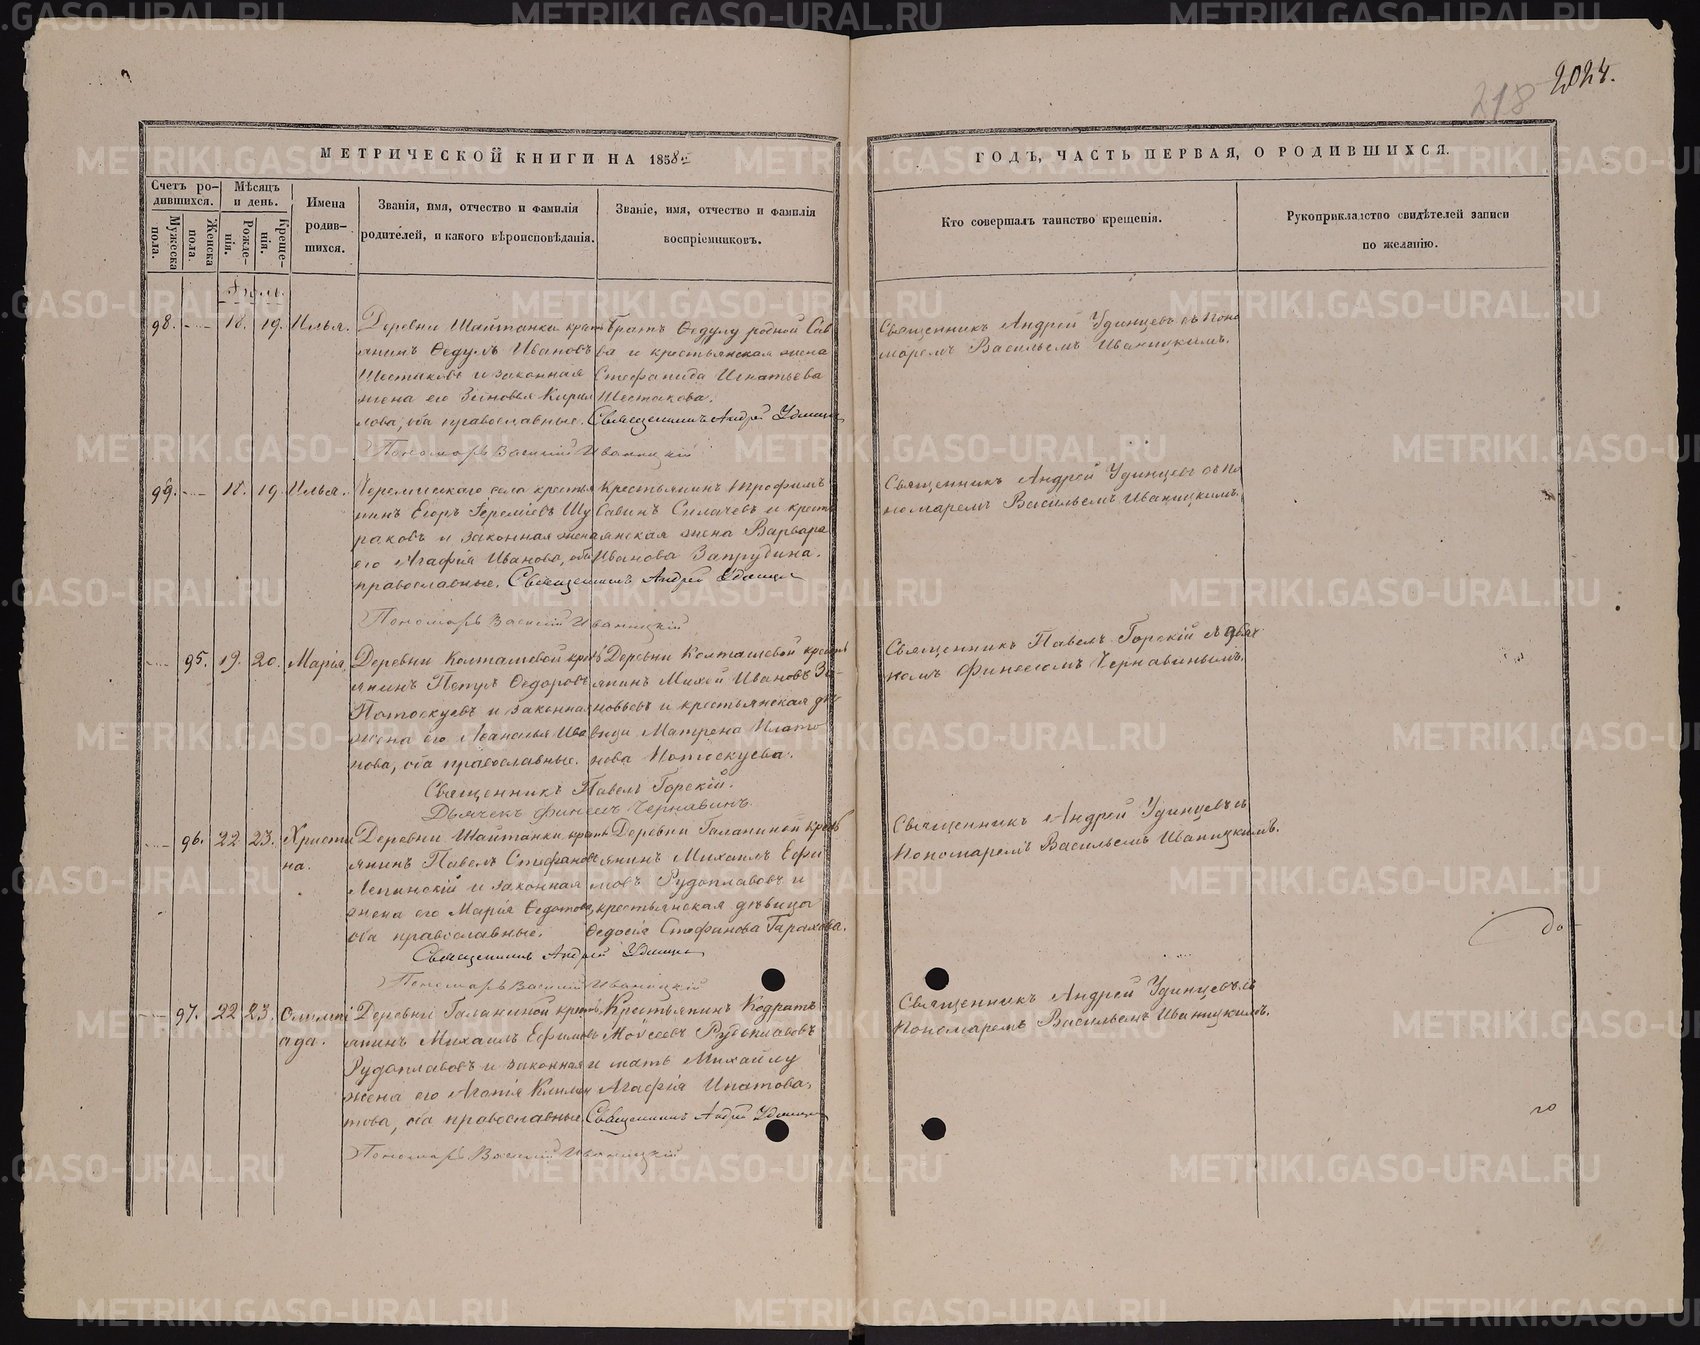 2024.
218
МЕТРИЧЕСКОЙ КНИГИ НА 1858
ГОДЪ, ЧАСТЬ ПЕРВАЯ, О РОДИВШИХСЯ.
Счетъ родившихся.
Мужеска пола.
Женска пола.
Мѣсяцъ и день.
Рожденія.
Крещенія.
Имена родившихся.
Званія, имя, отчество и фамилія родителей, и какого вѣроисповѣданія.
Званіе, имя, отчество и фамилія воспріемниковъ.
Кто совершалъ таинство крещенія.
Рукоприкладство свидѣтелей записи по желанію.
Іюль.
98. 18. 19. Илья.
Деревни Шайтанки крестьянинъ Ѳедулъ Ивановъ
Шестаковъ и законная
жена его Зиновья Кирилова, оба православные.
Братъ Ѳедулу родной Савва и крестьянская жена
Стефанида Игнатьева
Шестакова.
Священникъ Андрей Удинцевъ
Пономарь Василій Иваницкій
Священникъ Андрей Удинцевъ съ пономаремъ Васильемъ Иваницкимъ.
99. 18. 19. Илья.
Черемисскаго села крестьянинъ Егоръ Іереміевъ
и законная жена
его Агафія Иванова, оба
православные.
Крестьянинъ Трофимъ
Савинъ Силачевъ и крестьянская жена Варвара
Иванова Запрудина.
Священникъ Андрей Удинцевъ
Пономарь Василій Иваницкій
Священникъ Андрей Удинцевъ съ пономаремъ Васильемъ Иваницкимъ.
95. 19. 20. Марія.
Деревни Колташевой крестьянинъ Петръ Ѳедоровъ
Потоскуевъ и законная
жена его Иванова, оба православные.
Деревни Колташевой крестьянинъ Михей Ивановъ Зиновьевъ и крестьянская дѣвица Матрена Платонова Потоскуева.
Священникъ Павелъ Горскій.
Дьячекъ Финеесъ Чернавинъ
Священникъ Павелъ Горскій съ дьячкомъ Финеесомъ Чернавинымъ.
96. 22 23. Христина.
Деревни Шайтанки крестьянинъ Павелъ Стефановъ
Лепинскій и законная
жена его Марія Ѳедотова,
оба православные.
Деревни Галаниной крестьянинъ Михаилъ Ефимовъ Рудоплавовъ и
крестьянская дѣвица
Ѳедосія Стефанова Тарахова.
Священникъ Андрей Удинцевъ
Пономарь Василій Иваницкій
Священникъ Андрей Удинцевъ съ
Пономаремъ Васильемъ Иваницкимъ.
97. 22 23. Олимпіада.
Деревни Галаниной крестьянинъ Михаилъ Ефимовъ
Рудоплавовъ и законная
жена его Агапія, оба православные.
Крестьянинъ Кодратъ
Моисеевъ Рудоплавовъ
и мать Михайлу
Агафія Ипатова.
Священникъ Андрей Удинцевъ
Пономарь Василій Иваницкій
Священникъ Андрей Удинцевъ съ
Пономаремъ Васильемъ Иваницкимъ.
METRIKI.GASO-URAL.RU